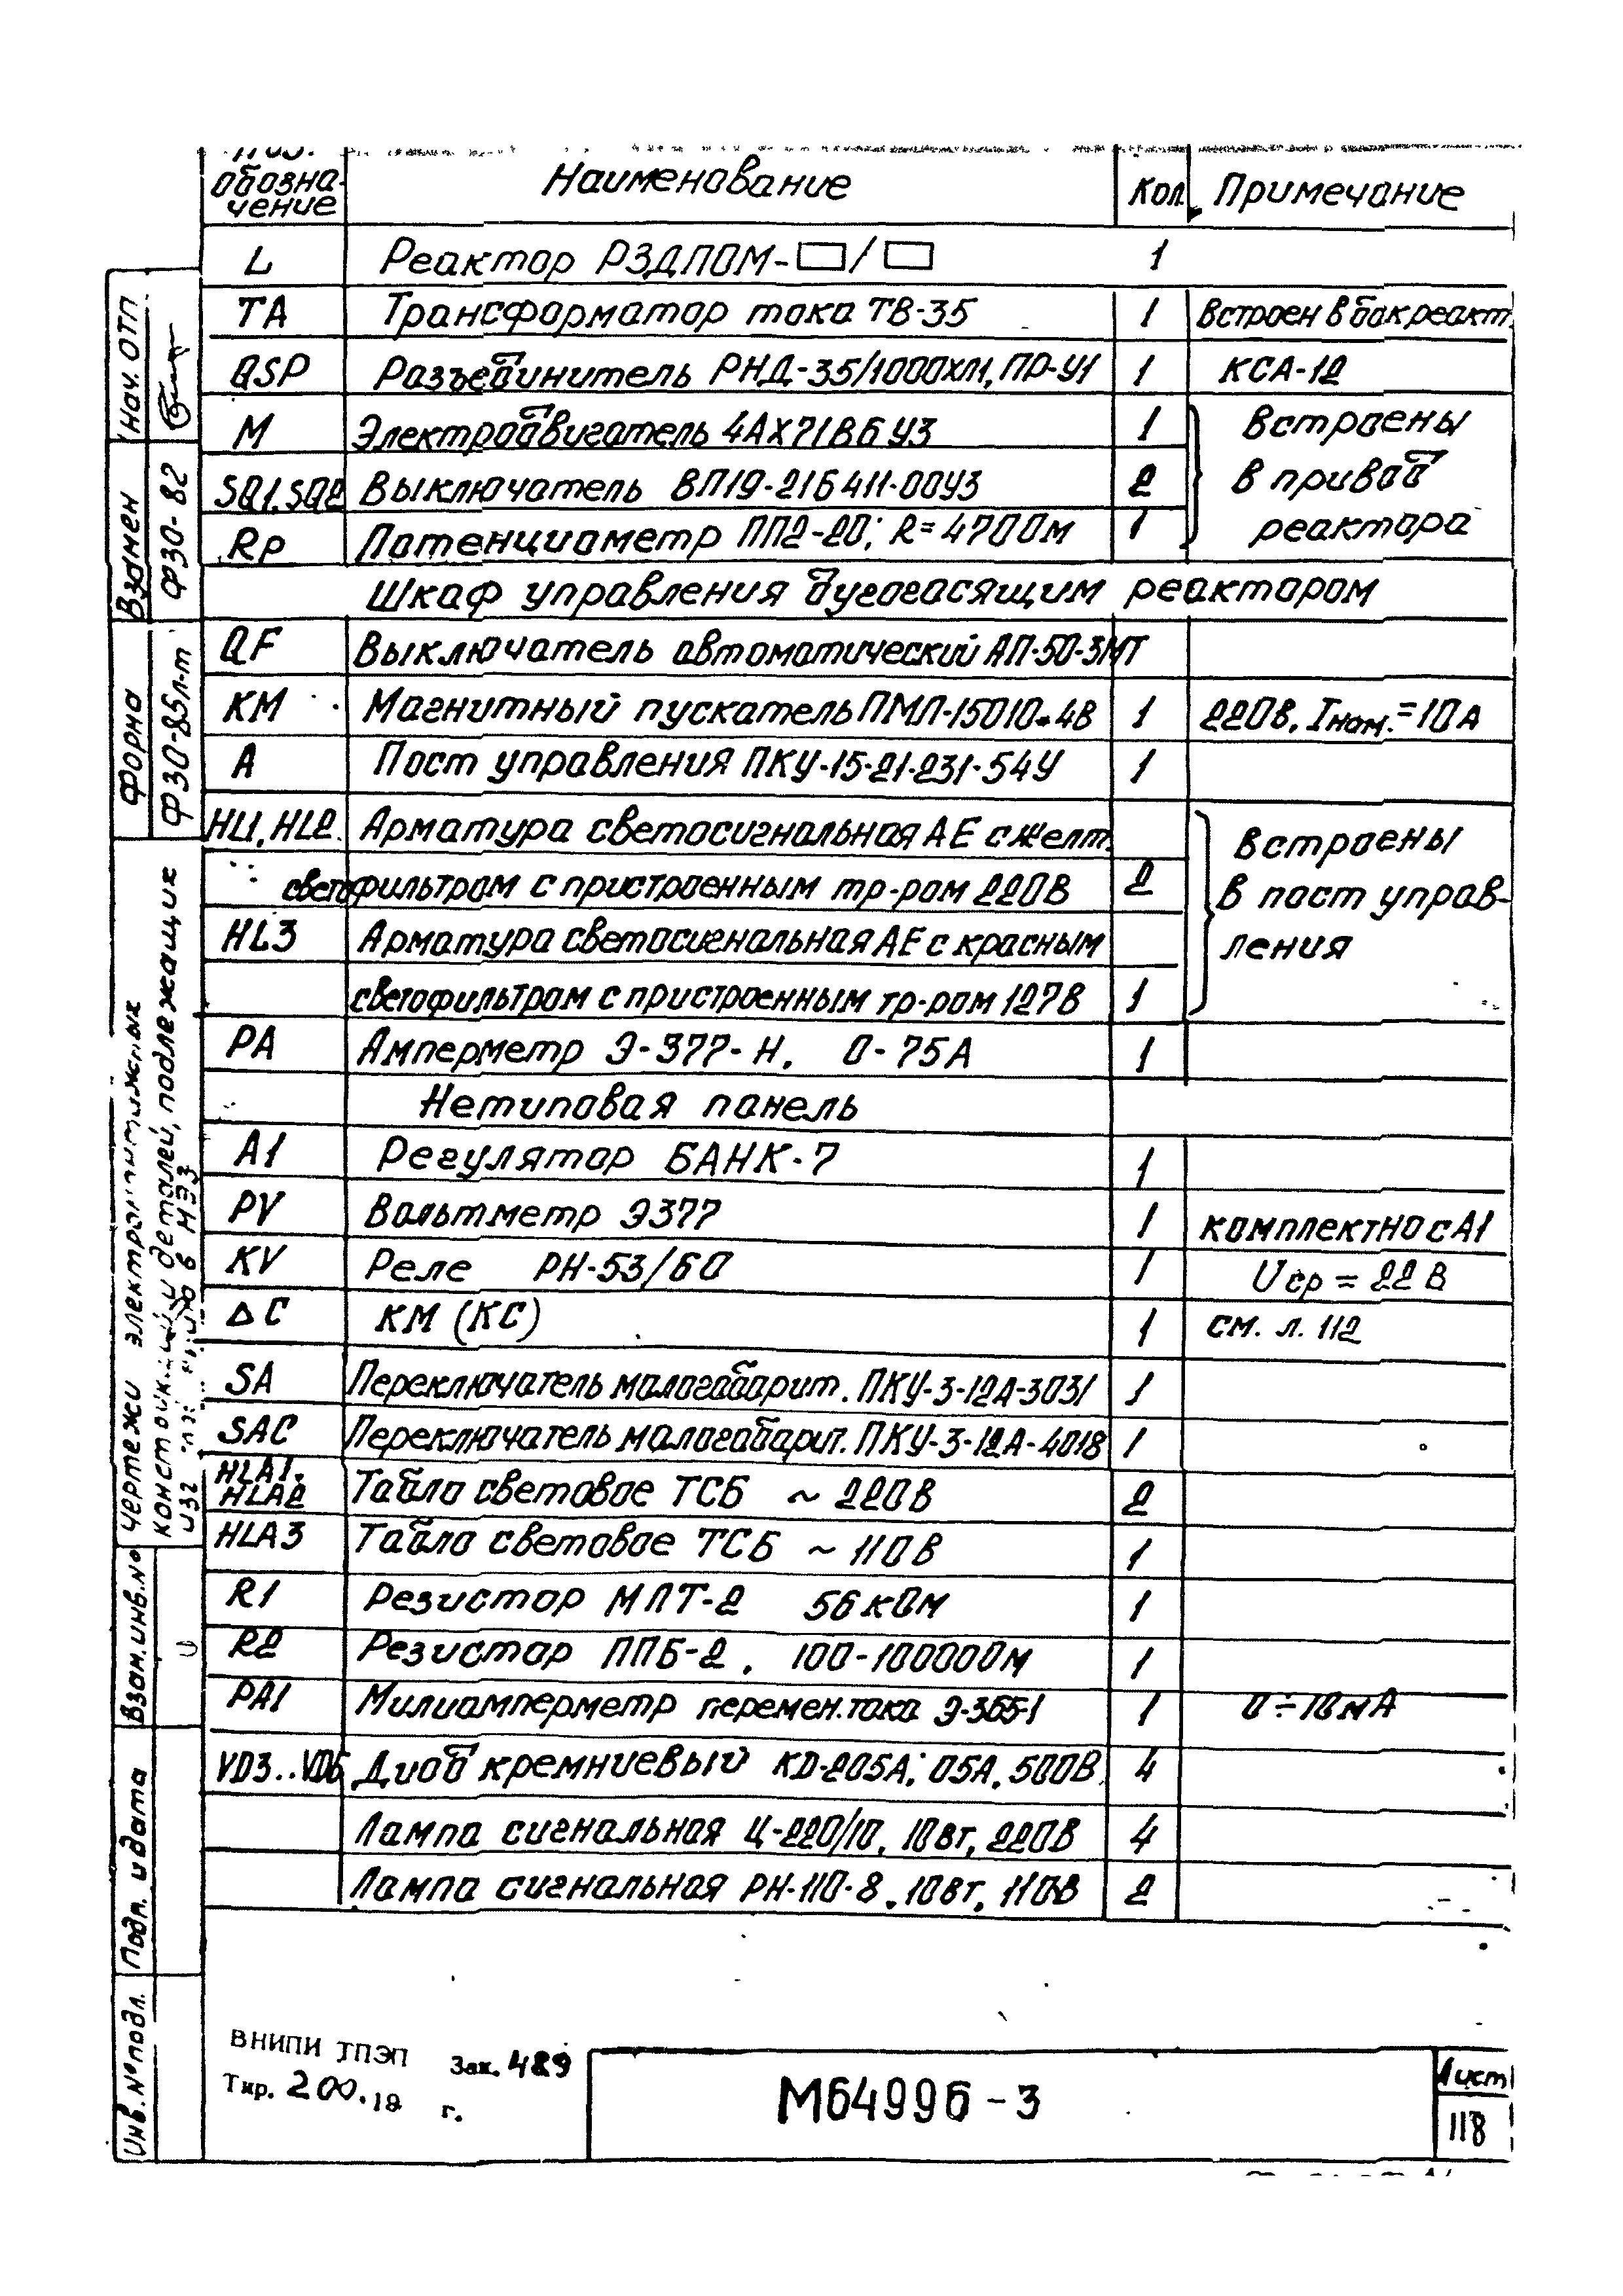 Поз. обозна- чение Наименование Кол. Примечание
L Реактор РЗДПОМ-□/□ 1
TA Трансформатор тока ТВ-35 1 Встроен в бак реакт.
QSP Разъединитель РНД-35/1000ХЛ1, ПР-У1 1 КСА-12
M Электродвигатель 4АХ71В6У3 1 Встроены
SQ1, SQ2 Выключатель ВП19-21Б411-00У3 2 в привод
Rp Потенциометр ПП2-20; R=470Ом 1 реактора
Шкаф управления дугогасящим реактором
QF Выключатель автоматический АП-50-3МТ
KM Магнитный пускатель ПМЛ-15010*4В 1 220В, Iном.=10А
A Пост управления ПКУ-15-21-231-54У 1
HL1, HL2 Арматура светосигнальная АЕ с желт. Встроены
светофильтром с пристроенным тр-ром 220В 2 в пост управ-
HL3 Арматура светосигнальная АЕ с красным ления
светофильтром с пристроенным тр-ром 127В 1
PA Амперметр Э-377-Н, 0-75А 1
Нетиповая панель
A1 Регулятор БАНК-7 1
PV Вольтметр Э377 1 комплектно с А1
KV Реле РН-53/60 1 Uср = 22 В
ΔC КМ (КС) 1 см. л. 112
SA Переключатель малогабарит. ПКУ-3-12А-3031 1
SAC Переключатель малогабарит. ПКУ-3-12А-4018 1
HLA1, HLA2 Табло световое ТСБ ~ 220В 2
HLA3 Табло световое ТСБ ~ 110В 1
R1 Резистор МЛТ-2 56 кОм 1
R2 Резистор ППБ-2, 100-10000Ом 1
PA1 Милиамперметр перемен. тока Э-365-1 1 0÷10мА
VD3..VD6 Диод кремниевый КД-205А; 05А, 500В 4
Лампа сигнальная Ц-220/10, 10вт, 220В 4
Лампа сигнальная РН-110-8, 10вт, 110В 2
Нач. ОТП
Взамен Ф30-82
Форма Ф30-85л-т
чертежи
деталей, подлежащих
в МЭЗ
Взам. инв. №
Подп. и дата
Инв. № подл.
ВНИПИ ТПЭП Зак. 489
Тир. 200. 19 г.
М64996-3
Лист
118